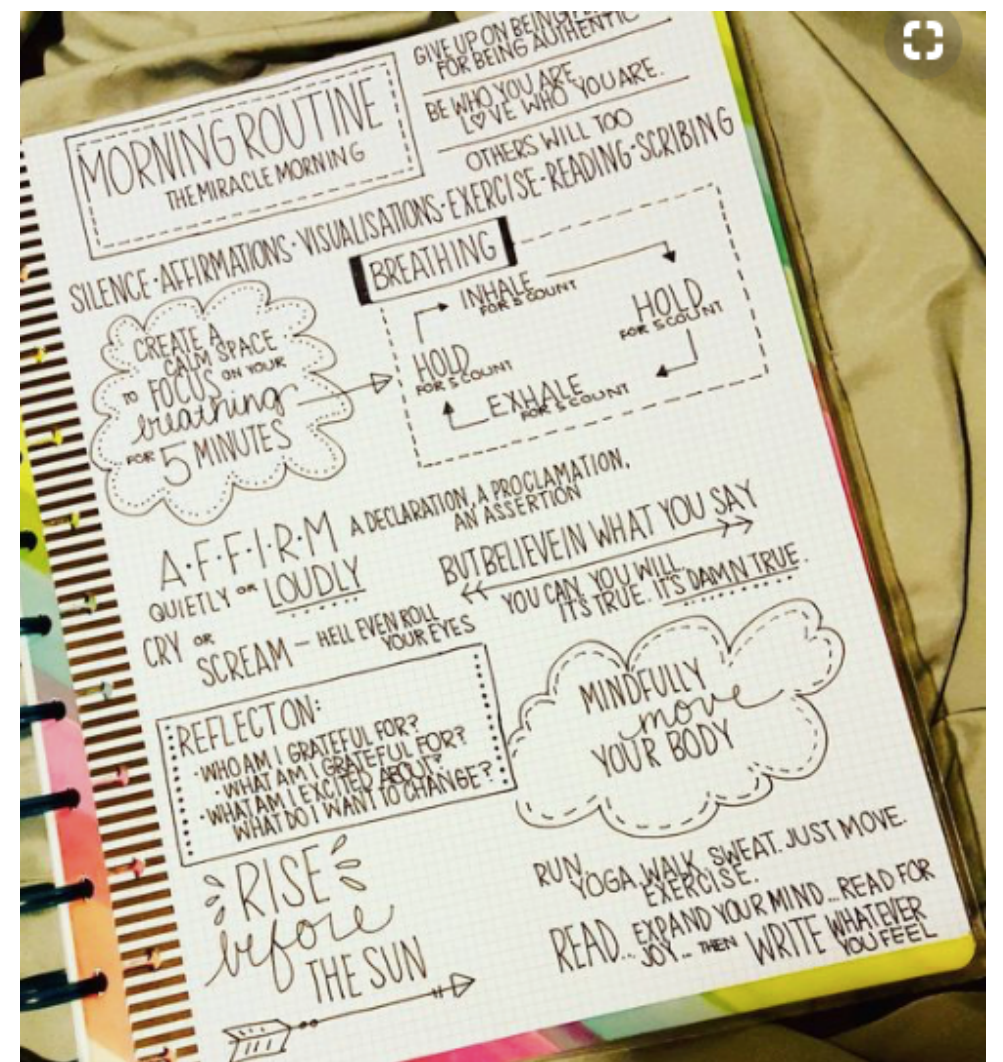 GIVE UP ON BEING
FOR BEING AUTHENTIC
BE WHO YOU ARE.
LOVE WHO YOU ARE.
OTHERS WILL TOO
MORNING ROUTINE
THE MIRACLE MORNING
SILENCE·AFFIRMATIONS·VISUALISATIONS·EXERCISE·READING·SCRIBING
CREATE A
CALM SPACE
TO FOCUS ON YOUR
breathing
FOR 5 MINUTES
BREATHING
INHALE
FOR 5 COUNT
HOLD
FOR 5 COUNT
EXHALE
FOR 5 COUNT
HOLD
FOR 5 COUNT
A·F·F·I·R·M
A DECLARATION, A PROCLAMATION,
AN ASSERTION
QUIETLY OR LOUDLY
CRY OR
SCREAM — HELL EVEN ROLL
YOUR EYES
BUT BELIEVE IN WHAT YOU SAY
YOU CAN. YOU WILL.
IT'S TRUE. IT'S DAMN TRUE.
REFLECTON:
·WHO AM I GRATEFUL FOR?
·WHAT AM I GRATEFUL FOR?
·WHAT AM I EXCITED ABOUT?
WHAT DO I WANT TO CHANGE?
MINDFULLY
move
YOUR BODY
RISE
before
THE SUN
RUN.
YOGA. WALK. SWEAT. JUST MOVE.
EXERCISE.
READ... EXPAND YOUR MIND... READ FOR
JOY... THEN WRITE WHATEVER
YOU FEEL